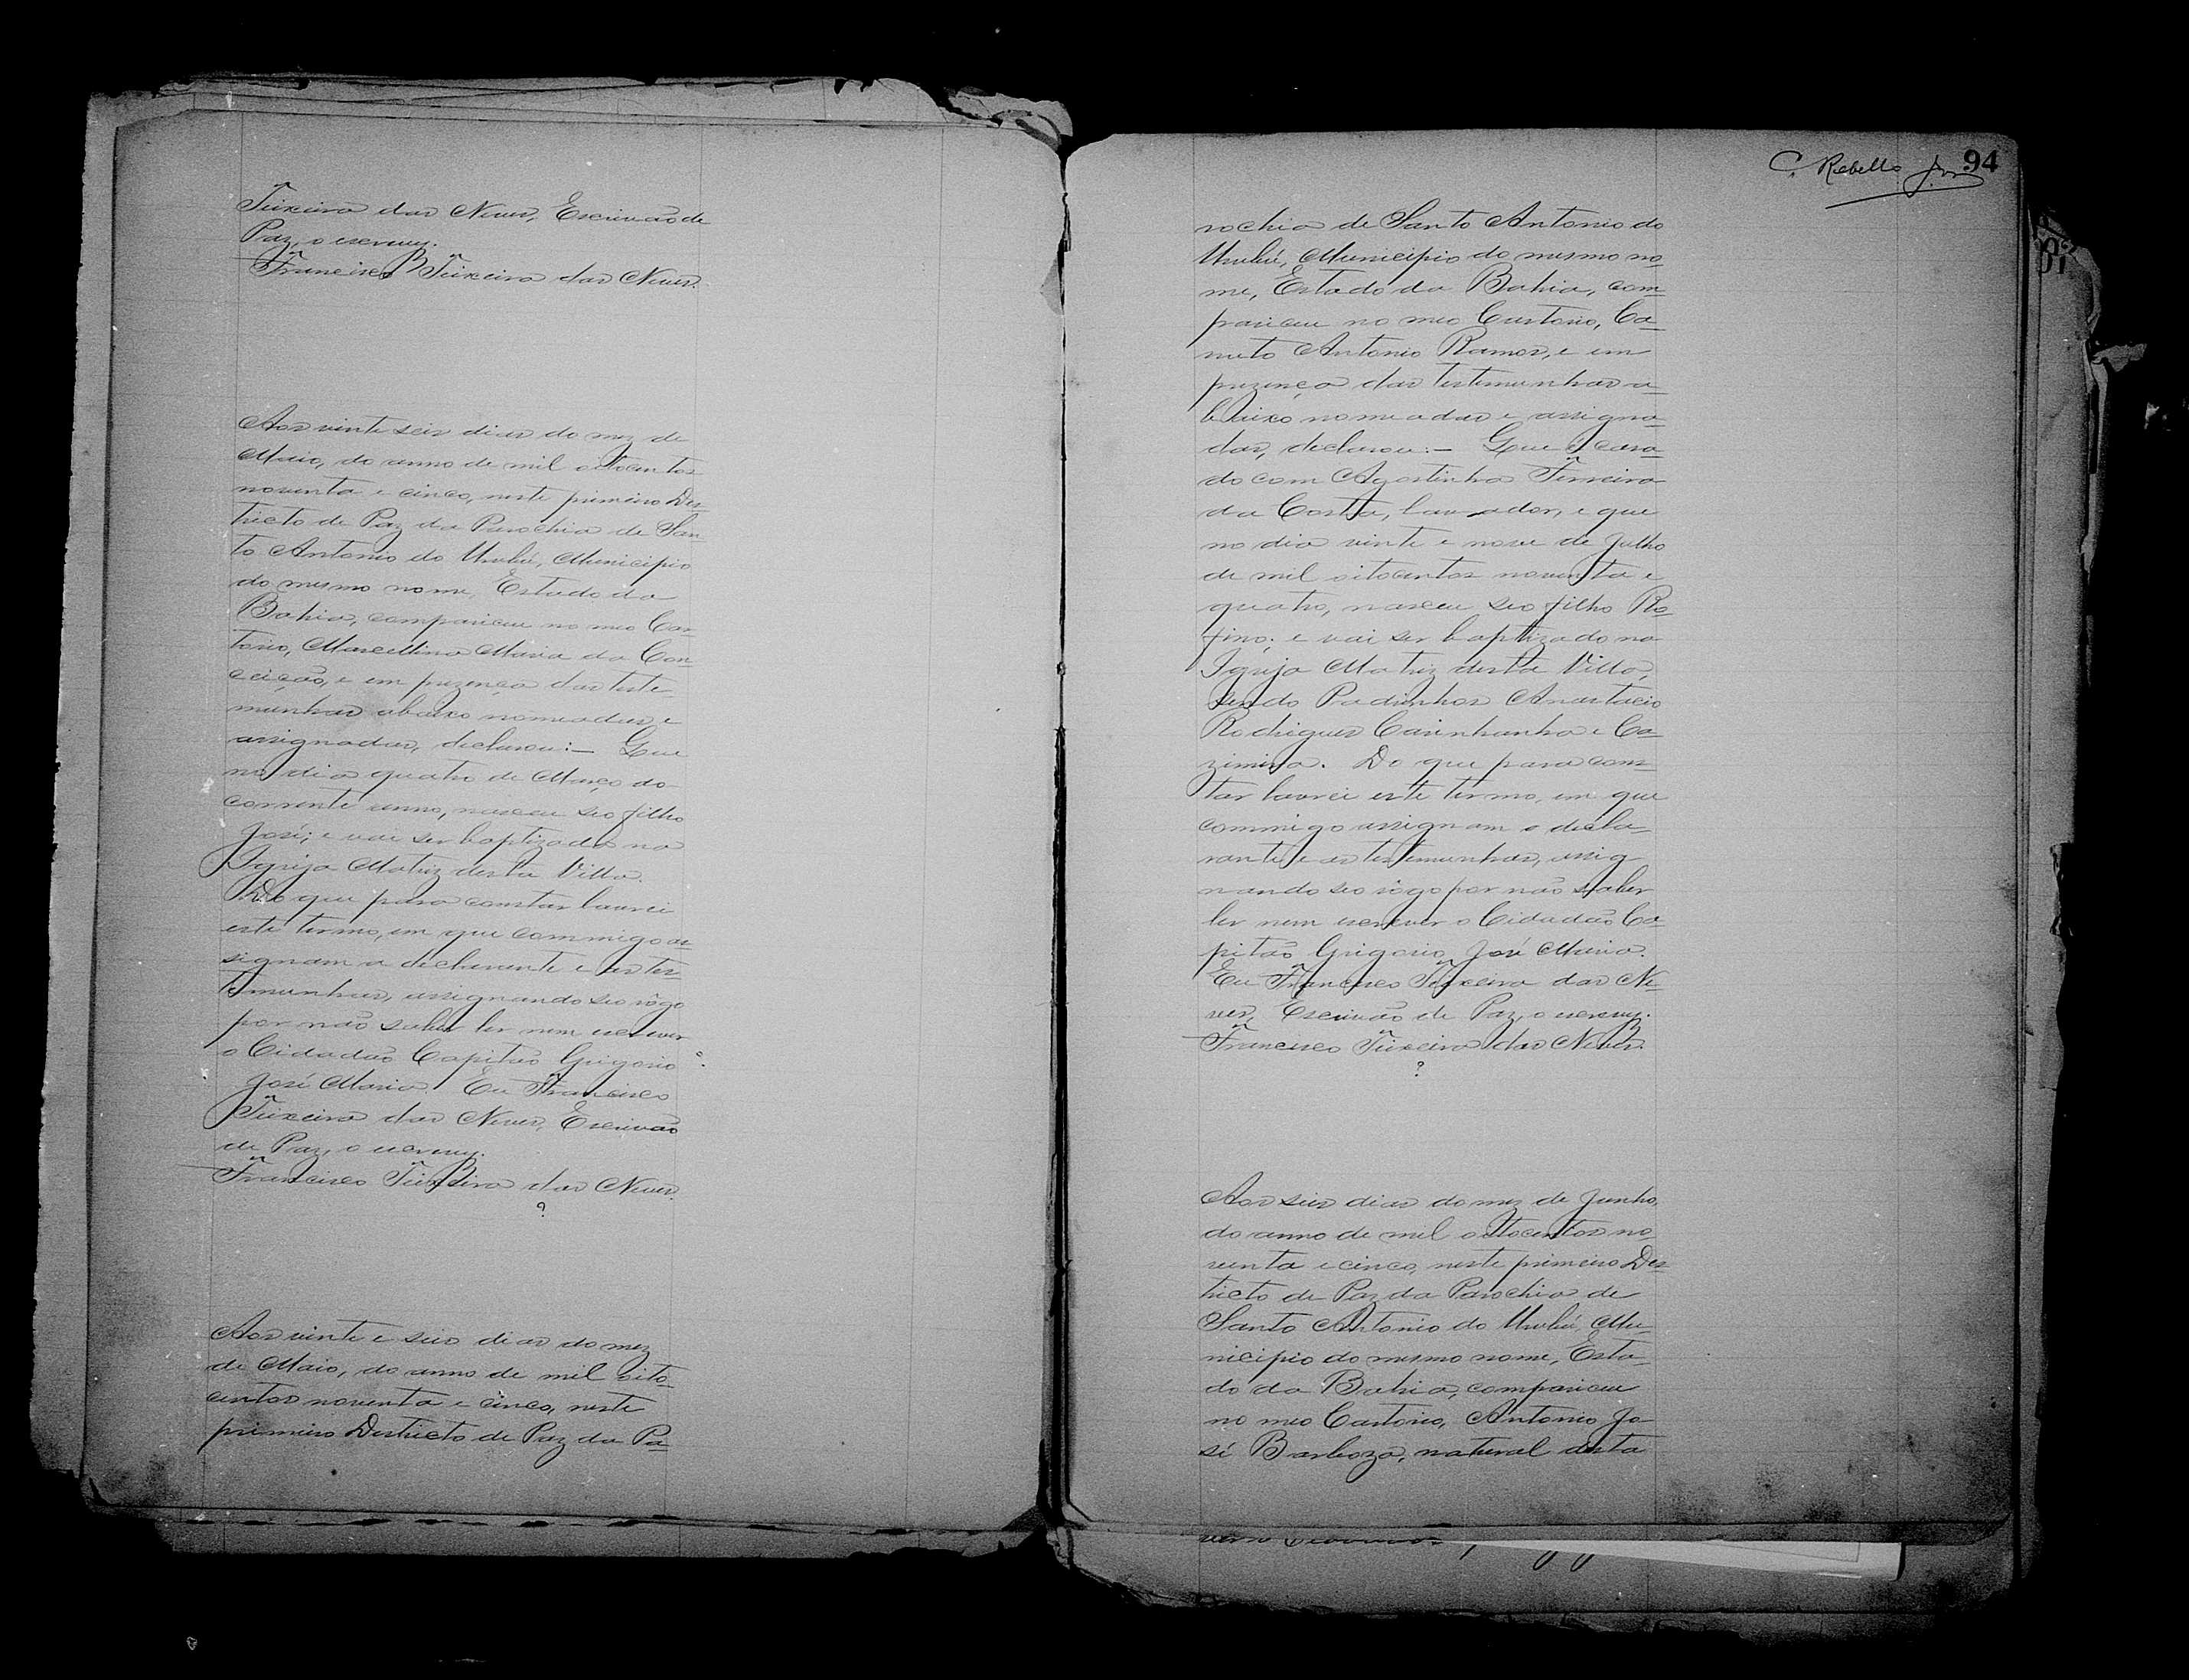 Teixeira das Neves, Escrivão de
Paz, o escrevy.
Francisco Teixeira das Neves.
Aos vinte seis dias do mez de
Maio, do anno de mil oitocentos
noventa e cinco, neste primeiro Des-
tricto de Paz da Parochia de San-
to Antonio do Urubú, Municipio
do mesmo nome, Estado da
Bahia, compareceu no meo Car-
torio, Marcellina Maria da Con-
ceição, e em prezença das teste-
munhas abaixo nomeadas e
assignadas, declarou:— Que
no dia quatro de Março do
corrente anno, nasceu seo filho
José; e vai ser baptizado na
Igreja Matriz desta Villa.
Do que para constar lavrei
este termo, em que commigo as-
signam a declarante e as tes-
temunhas, assignando seo rôgo
por não saber ler nem escrever
o Cidadão Capitão Grigorio
José Maria. Eu Francisco
Teixeira das Neves, Escrivão
de Paz, o escrevy.
Francisco Teixeira das Neves.
Aos vinte e seis dias do mez
de Maio, do anno de mil oito-
centos noventa e cinco, neste
primeiro Destricto de Paz da Pa-
C. Rebello 94
rochia de Santo Antonio do
Urubú, Municipio do mesmo no-
me, Estado da Bahia, com-
pareceu no meo Cartorio, Ca-
nuto Antonio Ramos, e em
prezença das testemunhas a-
baixo nomeadas e assigna-
das, declarou:— Que é casa-
do com Agostinha Ferreira
da Costa, lavrador, e que
no dia vinte e nove de Julho
de mil oitocentos noventa e
quatro, nasceu seo filho Ro-
fino; e vai ser baptizado na
Igreja Matriz desta Villa,
sendo Padrinhos Anastacio
Rodrigues Carinhanha e Ca-
zimira. Do que para cons-
tar lavrei este termo, em que
commigo assignam o decla-
rante e as testemunhas, assig-
nando seo rôgo por não saber
ler nem escrever o Cidadão Ca-
pitão Grigorio José Maria.
Eu Francisco Teixeira das Ne-
ves, Escrivão de Paz, o escrevy.
Francisco Teixeira das Neves.
Aos seis dias do mez de Junho,
do anno de mil oitocentos no-
venta e cinco, neste primeiro Des-
tricto de Paz da Parochia de
Santo Antonio do Urubú, Mu-
nicipio do mesmo nome, Esta-
do da Bahia, compareceu
no meo Cartorio, Antonio Jo-
sé Barboza, natural desta